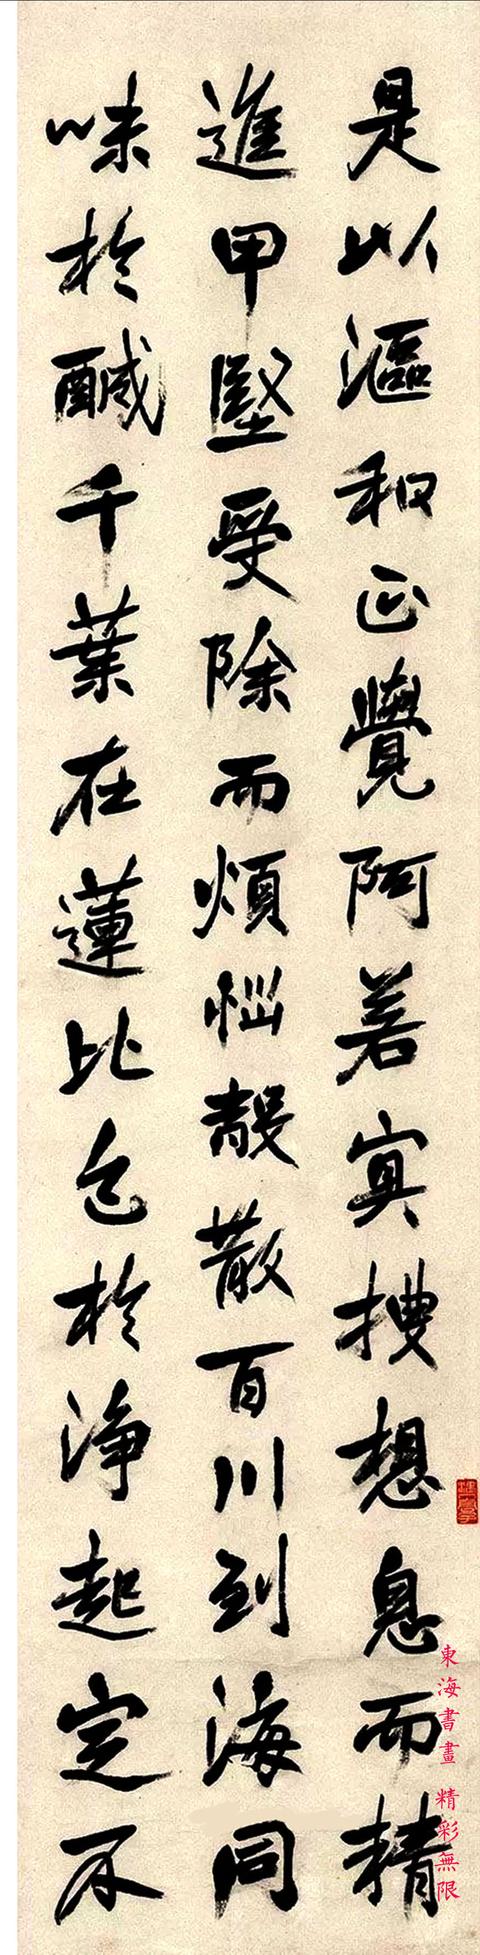 是以漚和正覺阿若冥搜想息而精
進甲堅受除而煩惱殼散百川到海同
味於醎千葉在蓮比色於淨起定不
東海書畫 精彩無限